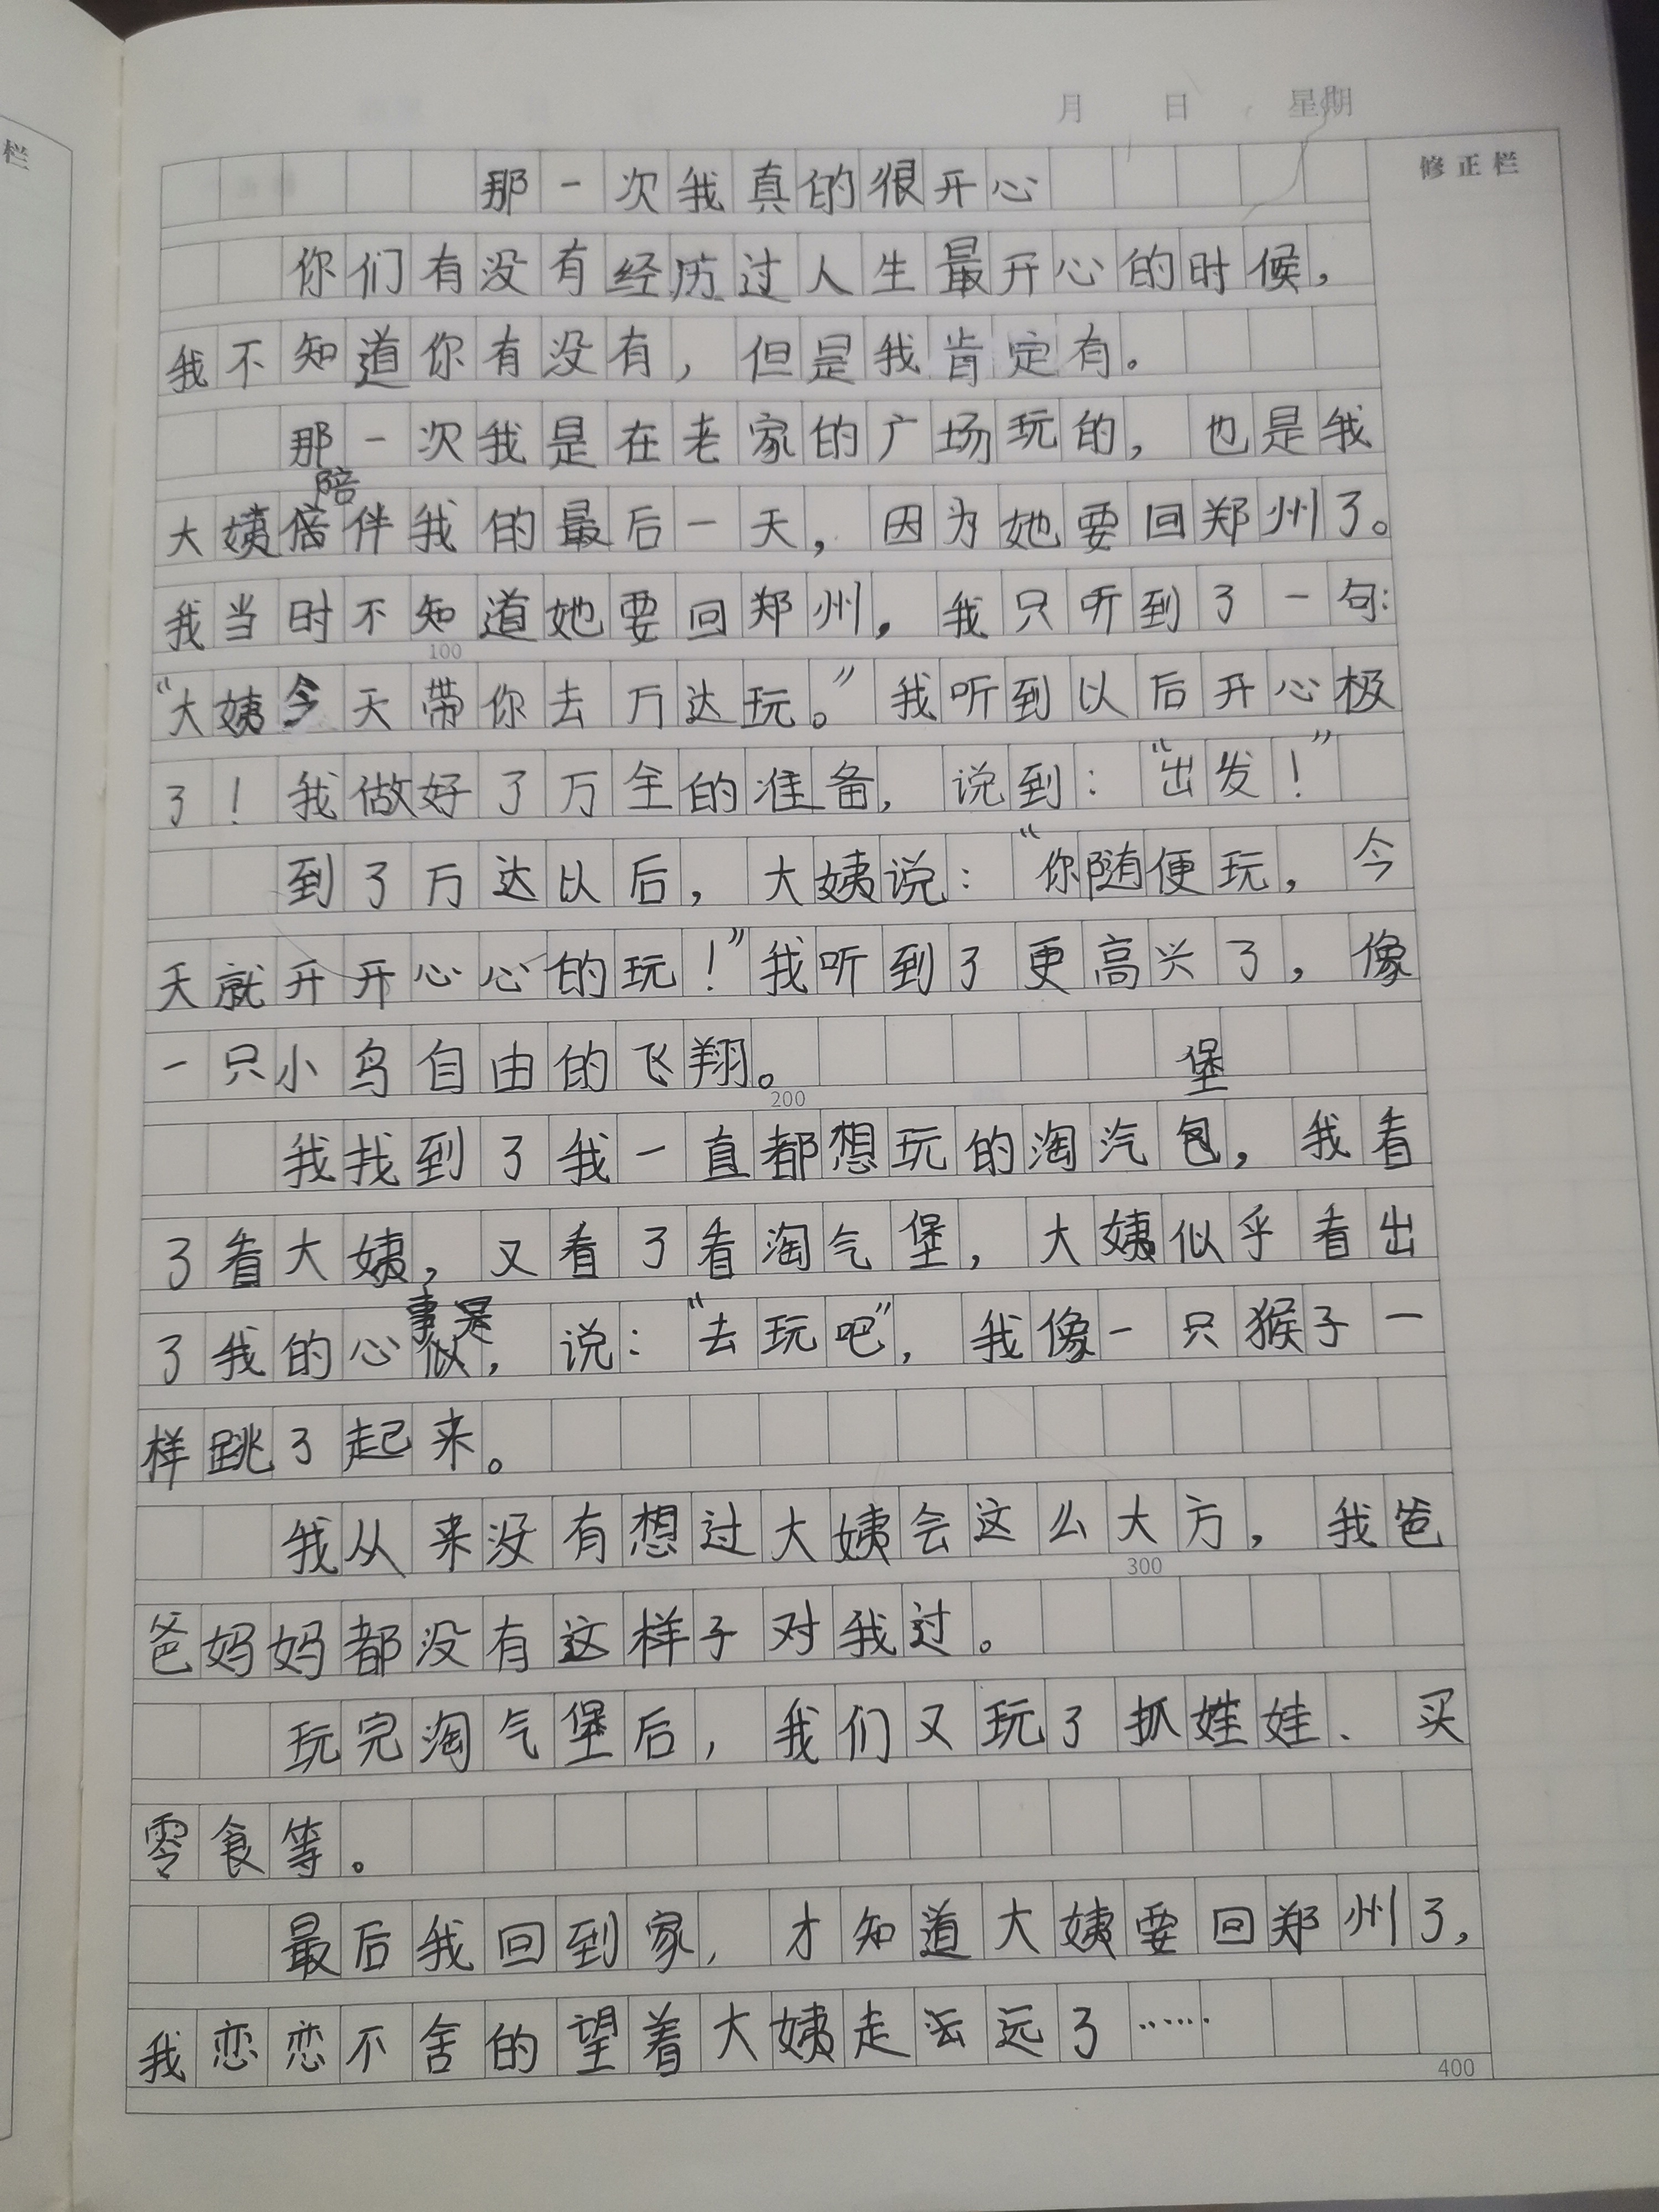 栏
月 日 星期
修正栏
那一次我真的很开心
你们有没有经历过人生最开心的时候，
我不知道你有没有，但是我肯定有。
那一次我是在老家的广场玩的，也是我
陪
大姨伴我的最后一天，因为她要回郑州了。
我当时不知道她要回郑州，我只听到了一句：
100
“大姨今天带你去万达玩。”我听到以后开心极
了！我做好了万全的准备，说到：“出发！”
到了万达以后，大姨说：“你随便玩，今
天就开开心心的玩！”我听到了更高兴了，像
一只小鸟自由的飞翔。
200
堡
我找到了我一直都想玩的淘汽包，我看
了看大姨，又看了看淘气堡，大姨似乎看出
事是
了我的心，说：“去玩吧”，我像一只猴子一
样跳了起来。
我从来没有想过大姨会这么大方，我爸
300
爸妈妈都没有这样子对我过。
玩完淘气堡后，我们又玩了抓娃娃、买
零食等。
最后我回到家，才知道大姨要回郑州了，
我恋恋不舍的望着大姨走远了……
400